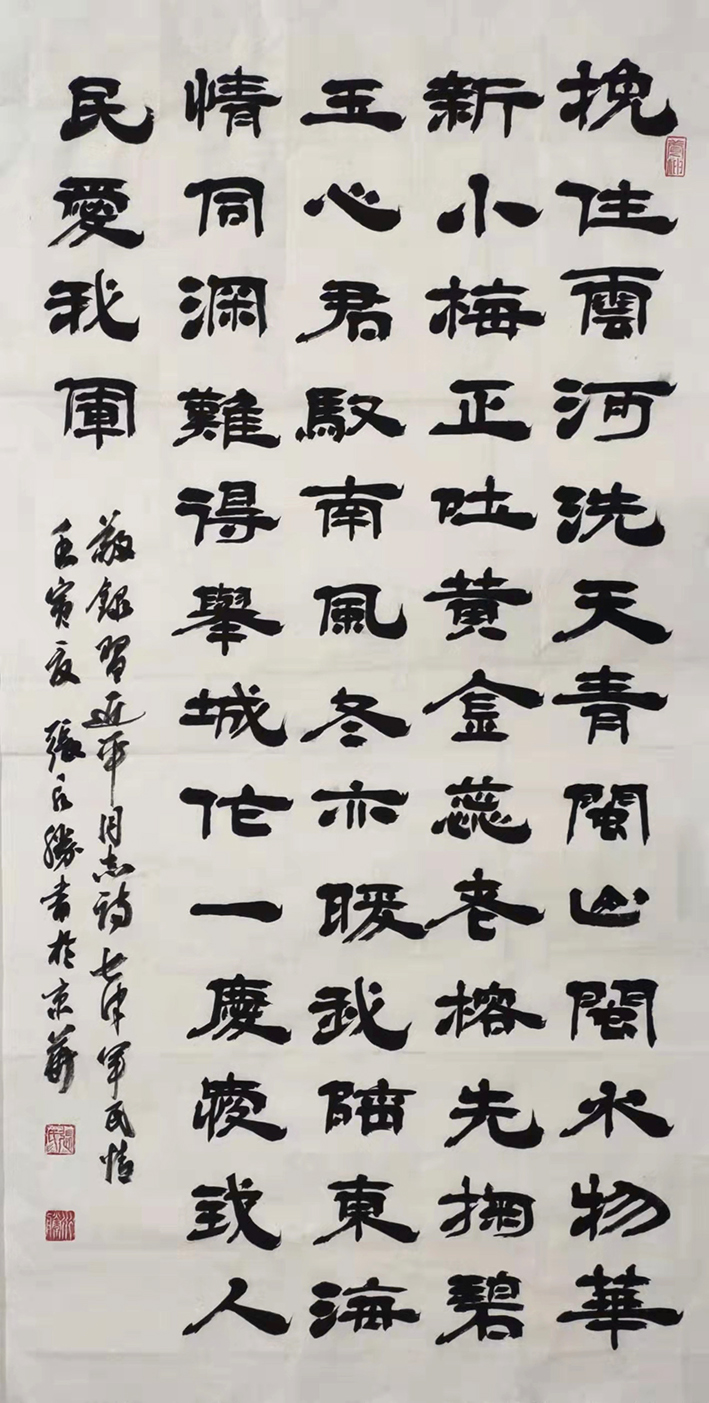 挽住雲河洗天青閩山閩水物華
新小梅正吐黄金蕊老榕先掬碧
玉心君馭南風冬亦暖我臨東海
情同深難得舉城作一慶愛我人
民愛我軍
敬錄習近平同志詩七律軍民情
壬寅夏 張勝書於京華